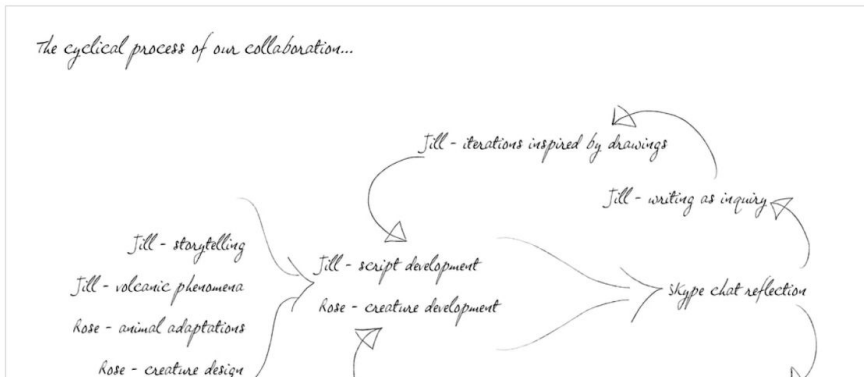 The cyclical process of our collaboration...
Jill - iterations inspired by drawings
Jill - writing as inquiry
Jill - storytelling
Jill - volcanic phenomena
Rose - animal adaptations
Rose - creature design
Jill - script development
Rose - creature development
Skype chat reflection